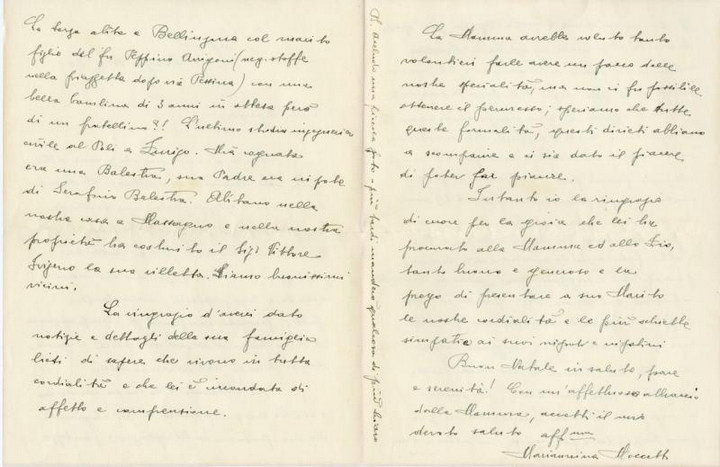 La terza abita a Bellinzona col marito
figlio del fu Peppino Arrigoni (neg. stoffe
nella piazzetta dopo via Pessina) con una
bella bambina di 3 anni in attesa però
di un fratellino?! L'ultimo studia ingegneria
civile al Poli a Zurigo. Mia cognata
era una Balestra, suo Padre era nipote
di Serafino Balestra. Abitano nella
nostra casa a Massagno e nella nostra
proprietà ha costruito il Sig. Vittore
la sua villetta. Siamo buonissimi
vicini.
La ringrazio d'averci dato
notizie e dettagli della sua famiglia
lieti di sapere che vivono in tutta
cordialità e che lei è circondata di
affetto e comprensione.
una foto - più tardi manderò qualcosa di più
La Mamma avrebbe voluto tanto
volontieri farle avere un pacco delle
nostre specialità, ma non ci fu possibile
ottenere il permesso; speriamo che tutte
queste formalità, questi divieti abbiano
a scomparire e ci sia dato il piacere
di poter far piacere.
Intanto io la ringrazio
di cuore per la gioia che lei ha
procurato alla Mamma ed allo Zio,
tanto buono e generoso e la
prego di presentare a suo Marito
le nostre cordialità e le più schiette
simpatie ai suoi nipoti e nipotini
Buon Natale in salute, pace
e serenità! Con un'affettuoso abbraccio
della Mamma, accetti il mio
devoto saluto aff.ma
Mariannina